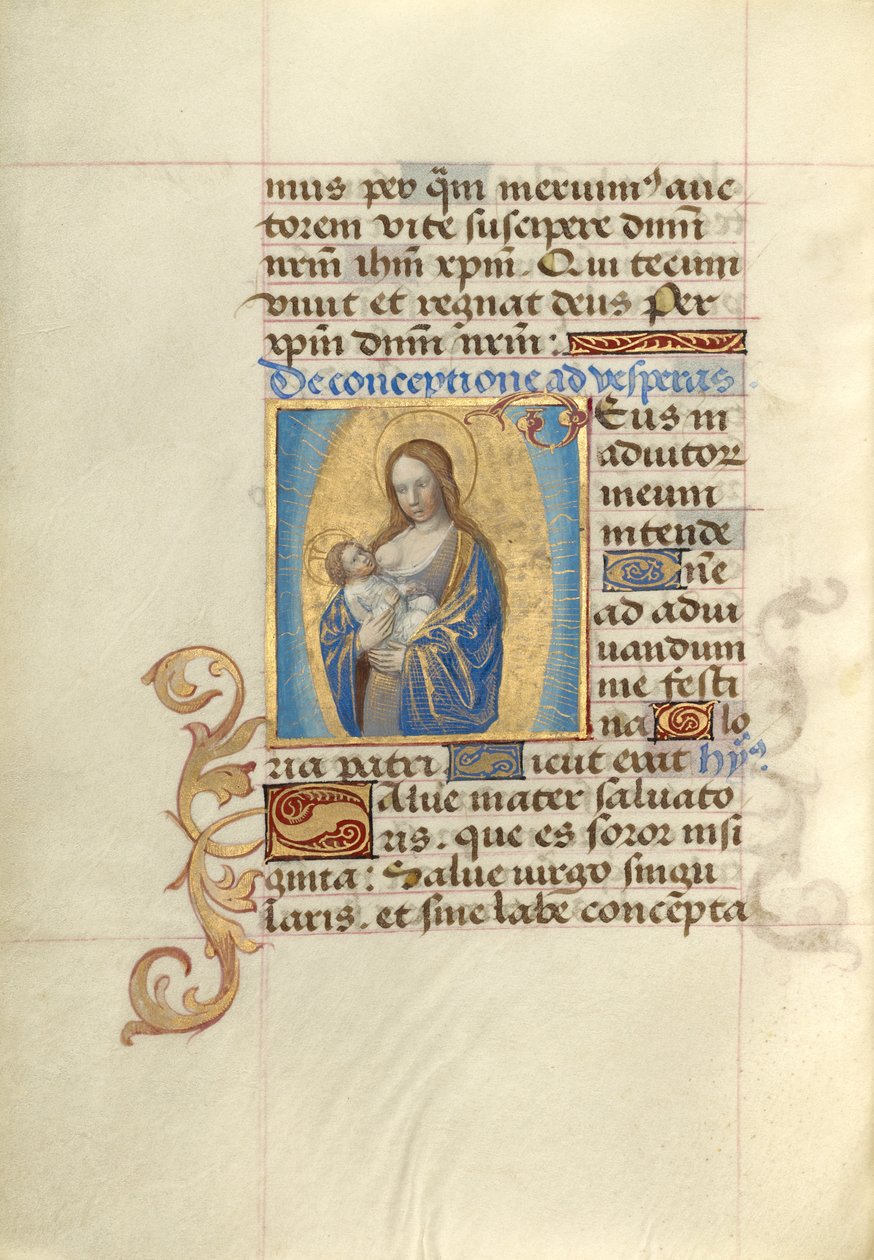 mus per q̃m meruim⁹ auc
torem vite suscipere dñm̃
nr̃m ihm̃ xpm̃. Qui tecum
viuit et regnat deus Per
xpm̃ dñm̃ nr̃m:
De conceptione ad vesperas.
DEus in
adiutor
meum
intende
Dñe
ad adiu
uandum
me festi
na Glo
ria patri Sicut erat hỹ⁹.
Salue mater saluato
ris. que es soror insi
gnita: Salue uirgo singu
laris. et sine labe concẽpta